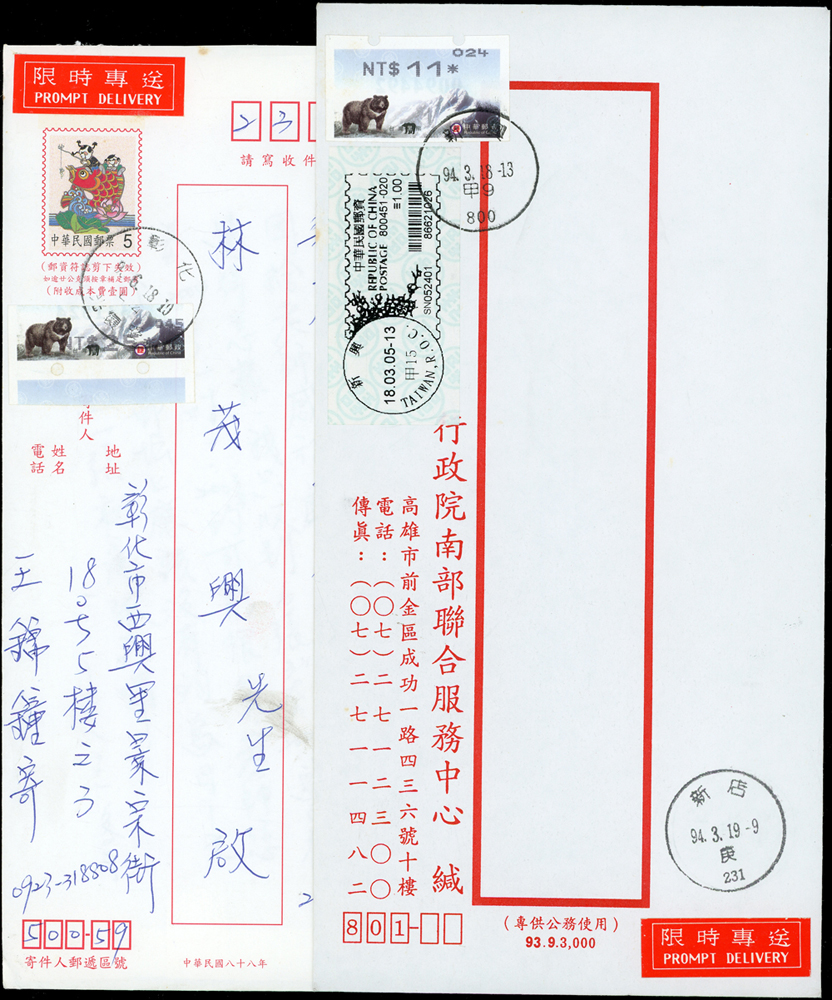 限時專送
PROMPT DELIVERY
中華民國郵票 5
(郵資符誌剪下失效)
(附收成本費壹圓)
彰化
NT$
中華郵政
2 3
請寫收件
林
茂
興
先生
啟
件人
地址
姓名
電話
彰化市西興里景宗街
18
5樓之3
王錦鐘寄
0923-318808
500-59
寄件人郵遞區號
中華民國八十八年
024
NT$ 11*
中華郵政
94.3.18-13
甲9
800
中華民國郵資
REPUBLIC OF CHINA
POSTAGE 800451-020
≡1.00
86621026
SN052401
新興
18.03.05-13
甲15
TAIWAN, R.O.C.
行政院南部聯合服務中心 緘
高雄市前金區成功一路四三六號十樓
電話:(〇七)二七一二三〇〇
傳眞:(〇七)二七一一四八二
801-
(專供公務使用)
93.9.3,000
新店
94.3.19-9
庚
231
限時專送
PROMPT DELIVERY